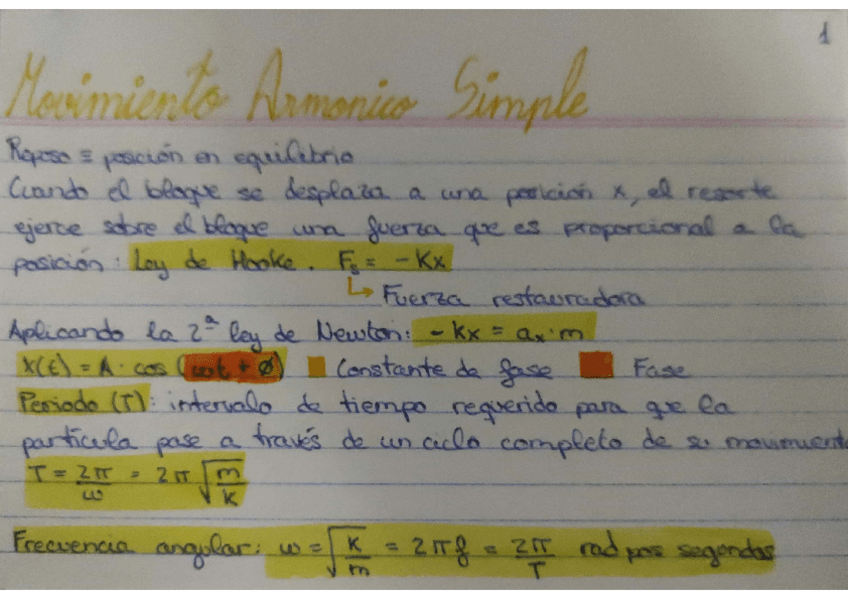 1
Movimiento Armonico Simple
Reposo ≡ posición en equilibrio
Cuando el bloque se desplaza a una posición x, el resorte
ejerce sobre el bloque una fuerza que es proporcional a la
posición: Ley de Hooke. Fs = -Kx
↳ Fuerza restauradora
Aplicando la 2ª ley de Newton: -kx = ax·m
x(t) = A·cos(ωt + ø) Constante de fase Fase
Periodo (T): intervalo de tiempo requerido para que la
partícula pase a través de un ciclo completo de su movimiento
T = 2π/ω = 2π√(m/k)
Frecuencia angular: ω = √(k/m) = 2πf = 2π/T rad por segundos